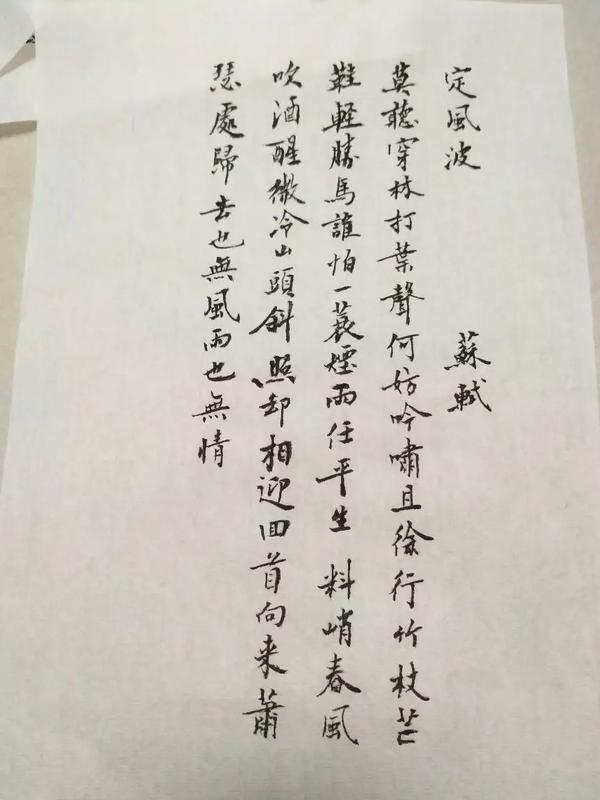 定風波 蘇軾
莫聽穿林打葉聲何妨吟嘯且徐行竹杖芒
鞋軽勝馬誰怕一蓑煙雨任平生料峭春風
吹酒醒微冷山頭斜照却相迎回首向来蕭
瑟處歸去也無風雨也無情